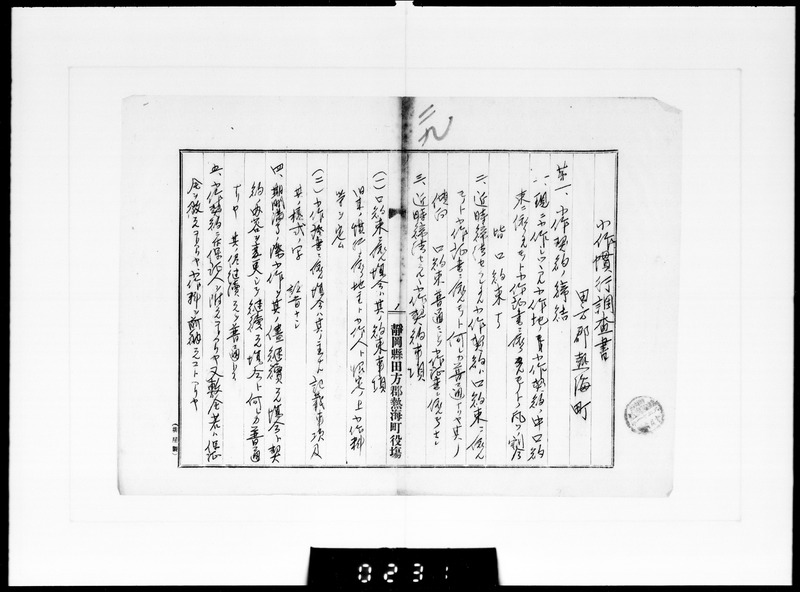 二九
小作慣行調査書
田方郡熱海町
第一、小作契約ノ締結
一、現ニ小作シツヽアル小作地ノ普通小作契約ノ中口約
束ニ依ルモノト小作証書ニ依ルモノトノ割合
皆口約束ナリ
二、近時締結セラレタル小作契約ハ口約束ニ依ル
モノト小作証書ニ依ルモノト何レカ普通ナリヤ其ノ
傾向 口約束普通ニシテ小作証書ニ依ルナシ
三、近時締結セラレタル小作契約事項
(一)口約束ニ依ル場合ハ其ノ約束事項
旧来ノ慣行ニ依リ地主ト小作人ト協定ノ上小作料
等ヲ定ム
(二)小作証書ニ依ル場合ハ其ノ主ナル記載事項及
其ノ様式ノ写 証書ナシ
四、期間満了ノ際小作ヲ其ノ儘継続スル場合ト契
約ノ内容ヲ変更シテ継続スル場合ト何レカ普通
ナリヤ 其ノ儘継続スルヲ普通トス
五、小作契約ニ在保証人ヲ附スルコトアリヤ又敷金若ハ保証
金ヲ徴スルコトアリヤ小作料ヲ前納スルコトアリヤ
靜岡縣田方郡熱海町役場
0231